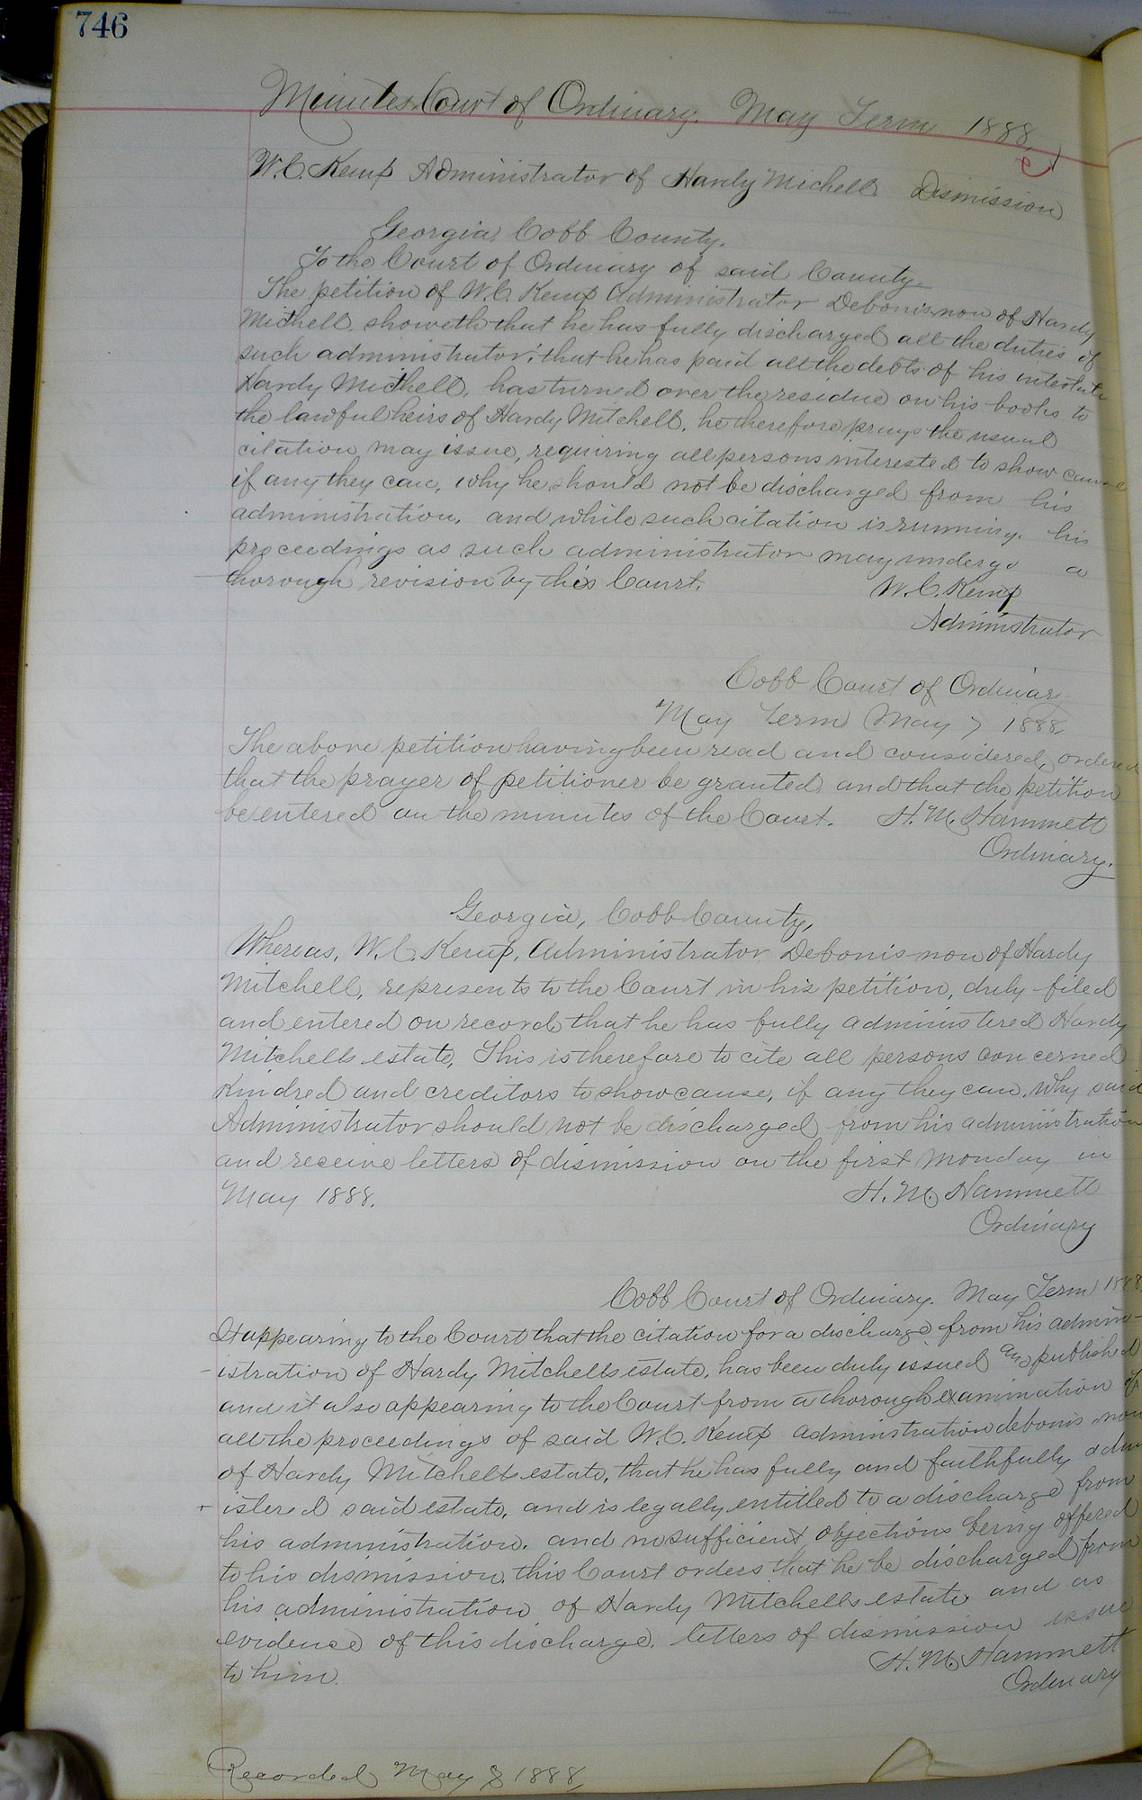 746
Minutes Court of Ordinary. May Term 1888
W.C. Kemp Administrator of Hardy Michell. Dismission
Georgia, Cobb County.
To the Court of Ordinary of said County.
The petition of W.C. Kemp Administrator Debonis non of Hardy
Mithell, showeth that he has fully discharged all the duties of
such administrator, that he has paid all the debts of his intestate
Hardy Mithell, has turned over the residue on his books to
the lawful heirs of Hardy Mitchell, he therefore prays the usual
citation may issue, requiring all persons interested to show cause
if any they can, why he should not be discharged from his
administration, and while such citation is running, his
proceedings as such administrator may undergo a
thorough revision by this Court.
W.C. Kemp
Administrator
Cobb Court of Ordinary
May Term May 7 1888
The above petition having been read and considered, ordered
that the prayer of petitioner be granted and that the petition
be entered on the minutes of the Court. H.M. Hammett
Ordinary.
Georgia, Cobb County,
Whereas, W.C. Kemp, Administrator Debonis non of Hardy
Mitchell, represents to the Court in his petition, duly filed
and entered on record, that he has fully administered Hardy
Mitchells estate, This is therefore to cite all persons concerned
Kindred and creditors to show cause, if any they can, why said
Administrator should not be discharged from his administration
and receive letters of dismission on the first Monday in
May 1888. H.M. Hammett
Ordinary
Cobb Court of Ordinary. May Term 1888
It appearing to the Court that the citation for a discharge from his admin-
-istration of Hardy Mitchells estate, has been duly issued and published
and it also appearing to the Court from a thorough examination of
all the proceedings of said W.C. Kemp administration debonis non
of Hardy Mitchells estate, that he has fully and faithfully admin
istered said estate, and is legally entitled to a discharge from
his administration, and no sufficient objections being offered
to his dismission, this Court orders that he be discharged from
his administration of Hardy Mitchells estate and as
evidence of this discharge, letters of dismission issue
to him. H.M. Hammett
Ordinary
Recorded May 8 1888